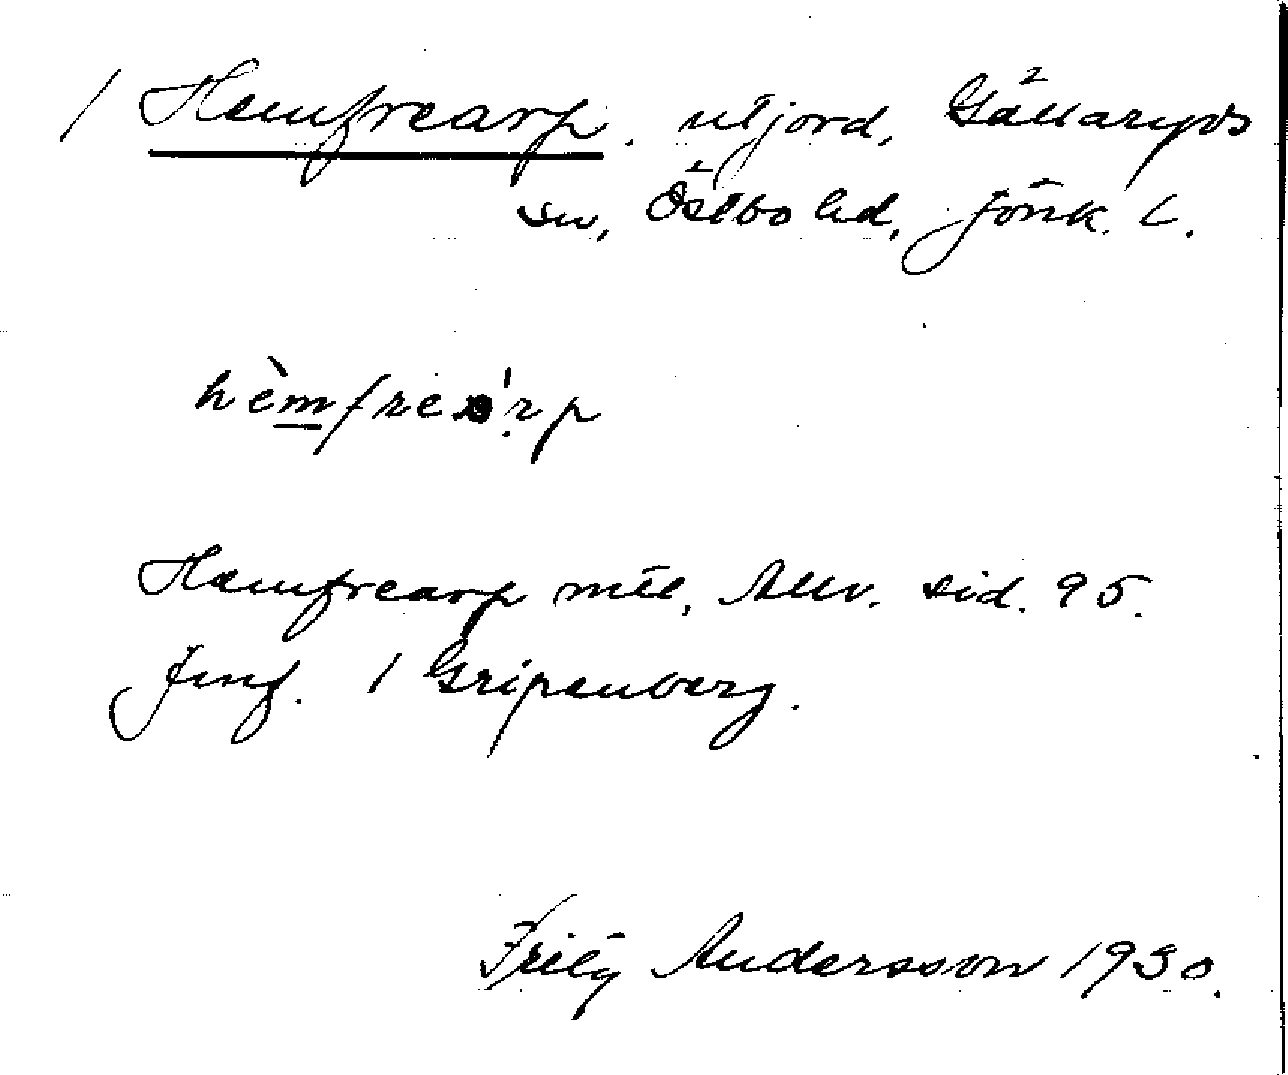 / Hemfrearp. utjord, Gällaryds
sn, Östbo hd, Jönk. l.
hèmfreárp
Hemfrearp mtl, Allv. sid. 95.
Jmf. / Gripenberg.
Frity Andersson 1930.